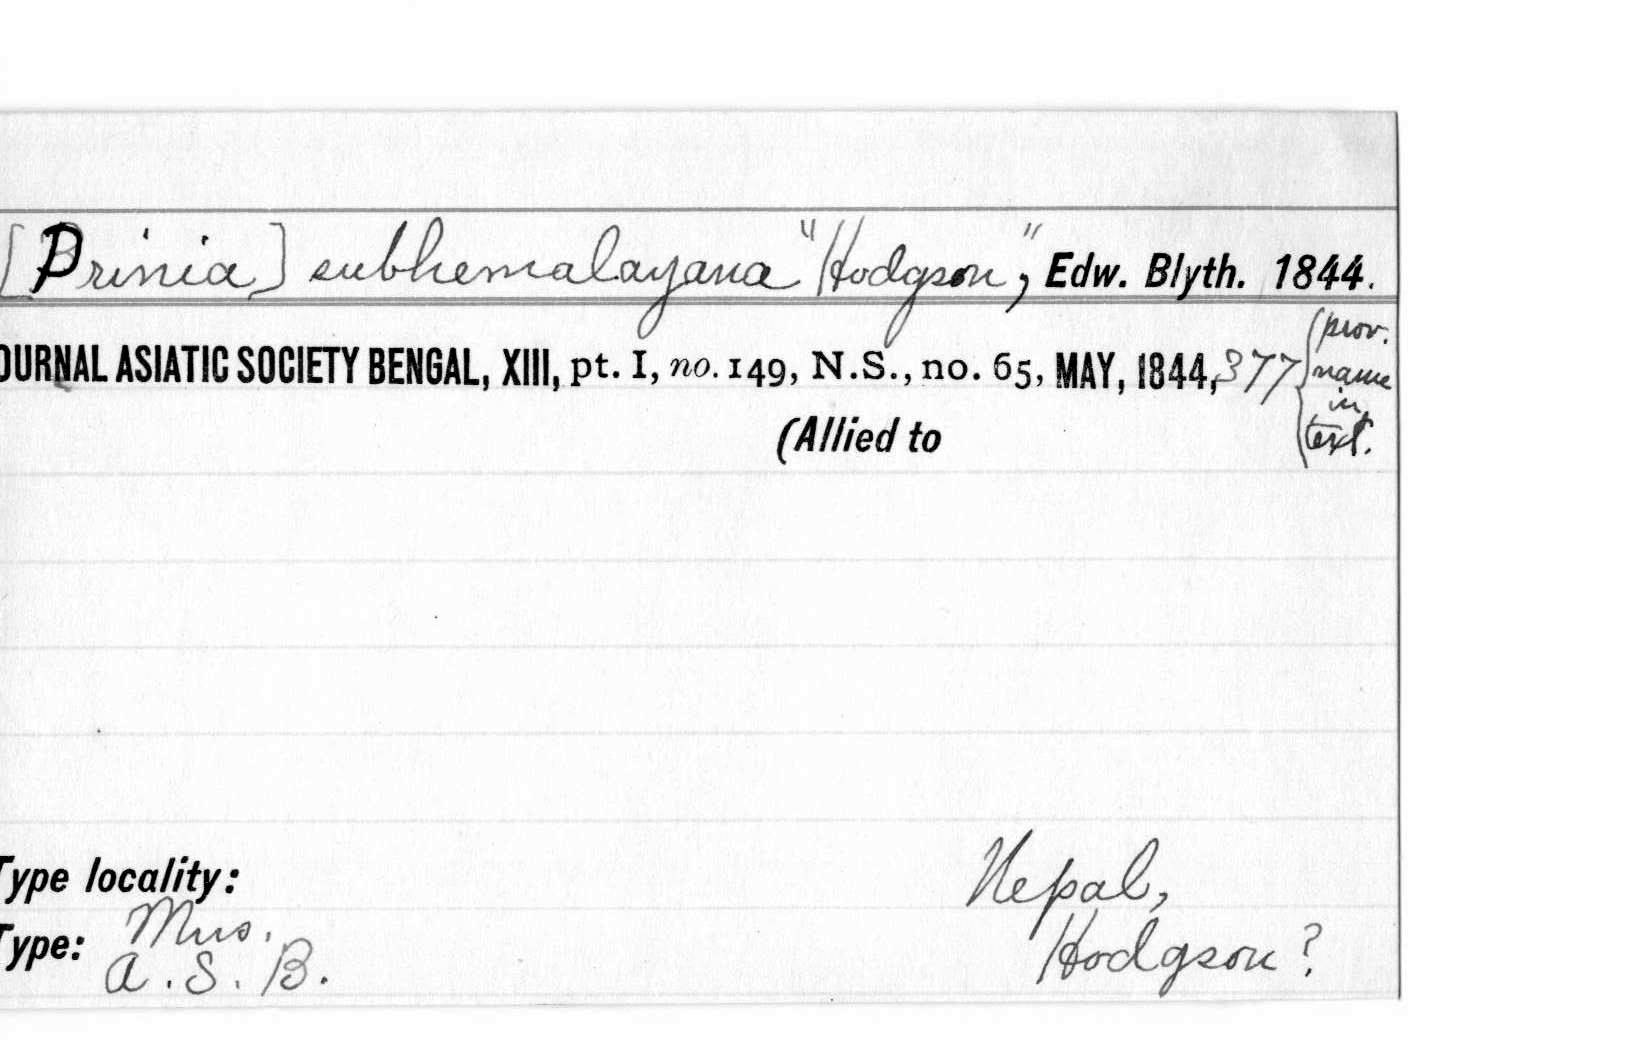 [Prinia] subhemalayana "Hodgson", Edw. Blyth. 1844.
OURNAL ASIATIC SOCIETY BENGAL, XIII, pt. I, no. 149, N.S., no. 65, MAY, 1844, 377 (prov.
name
in
(Allied to text.
Type locality: Nepal,
Mus.
Type: Hodgson?
A. S. B.